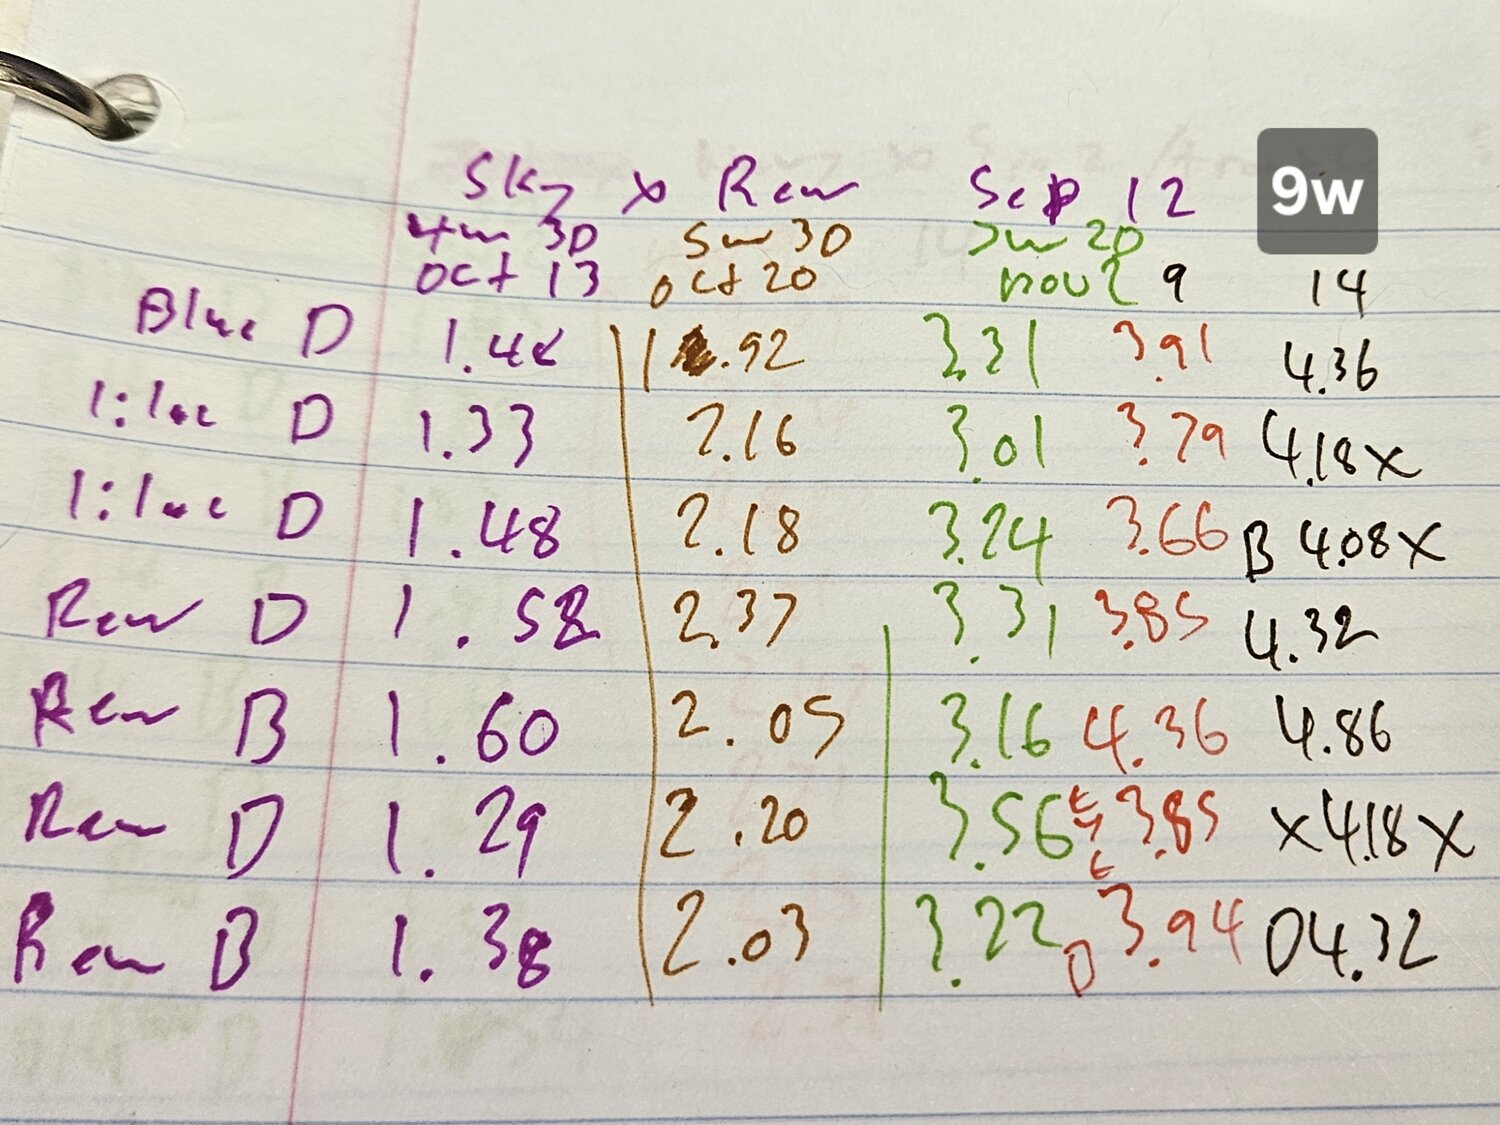 Sky x Rew Sep 12 9w
4w 3D 5w 3D 7w 2D
Oct 13 Oct 20 nov 2 9 14
Blue D 1.48 1.92 3.31 3.91 4.36
lilac D 1.33 2.16 3.01 3.79 4.18 x
lilac D 1.48 2.18 3.24 3.66 B 4.08 x
Rew D 1.58 2.37 3.31 3.85 4.32
Rew B 1.60 2.05 3.16 4.36 4.86
Rew D 1.29 2.20 3.56 3.85 x 4.18 x
Rew B 1.38 2.03 3.22 D 3.94 D 4.32